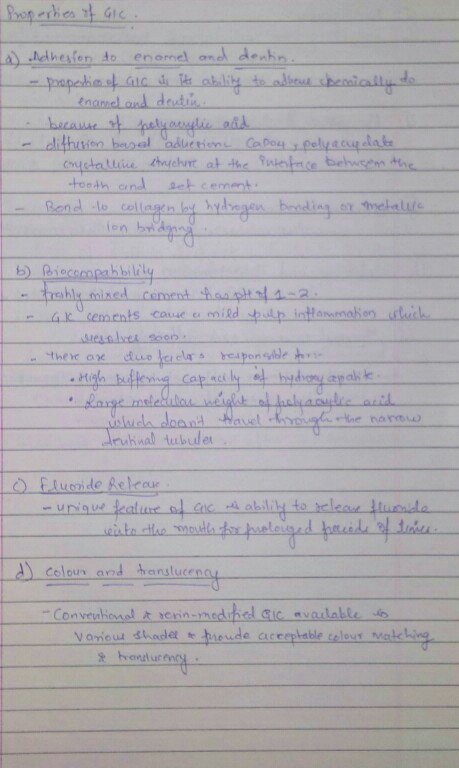 Properties of GIC.
a) Adhesion to enamel and dentin.
- properties of GIC is its ability to adhere chemically to
enamel and dentin.
- because of polyacrylic acid
- diffusion based adhesion CaPO4, polyacrylate
crystalline structure at the interface between the
tooth and set cement.
- Bond to collagen by hydrogen bonding or metallic
ion bridging.
b) Biocompatibility
- freshly mixed cement has pH of 1-2.
- GIC cements cause a mild pulp inflammation which
resolves soon.
- There are two factors responsible for:-
• High buffering capacity of hydroxyapatite.
• Large molecular weight of polyacrylic acid
which doesn't travel through the narrow
dentinal tubules.
c) Fluoride Release.
- unique feature of GIC is ability to release fluoride
into the mouth for prolonged periods of time.
d) Colour and translucency
- Conventional & resin-modified GIC available
various shades & provide acceptable colour matching
& translucency.